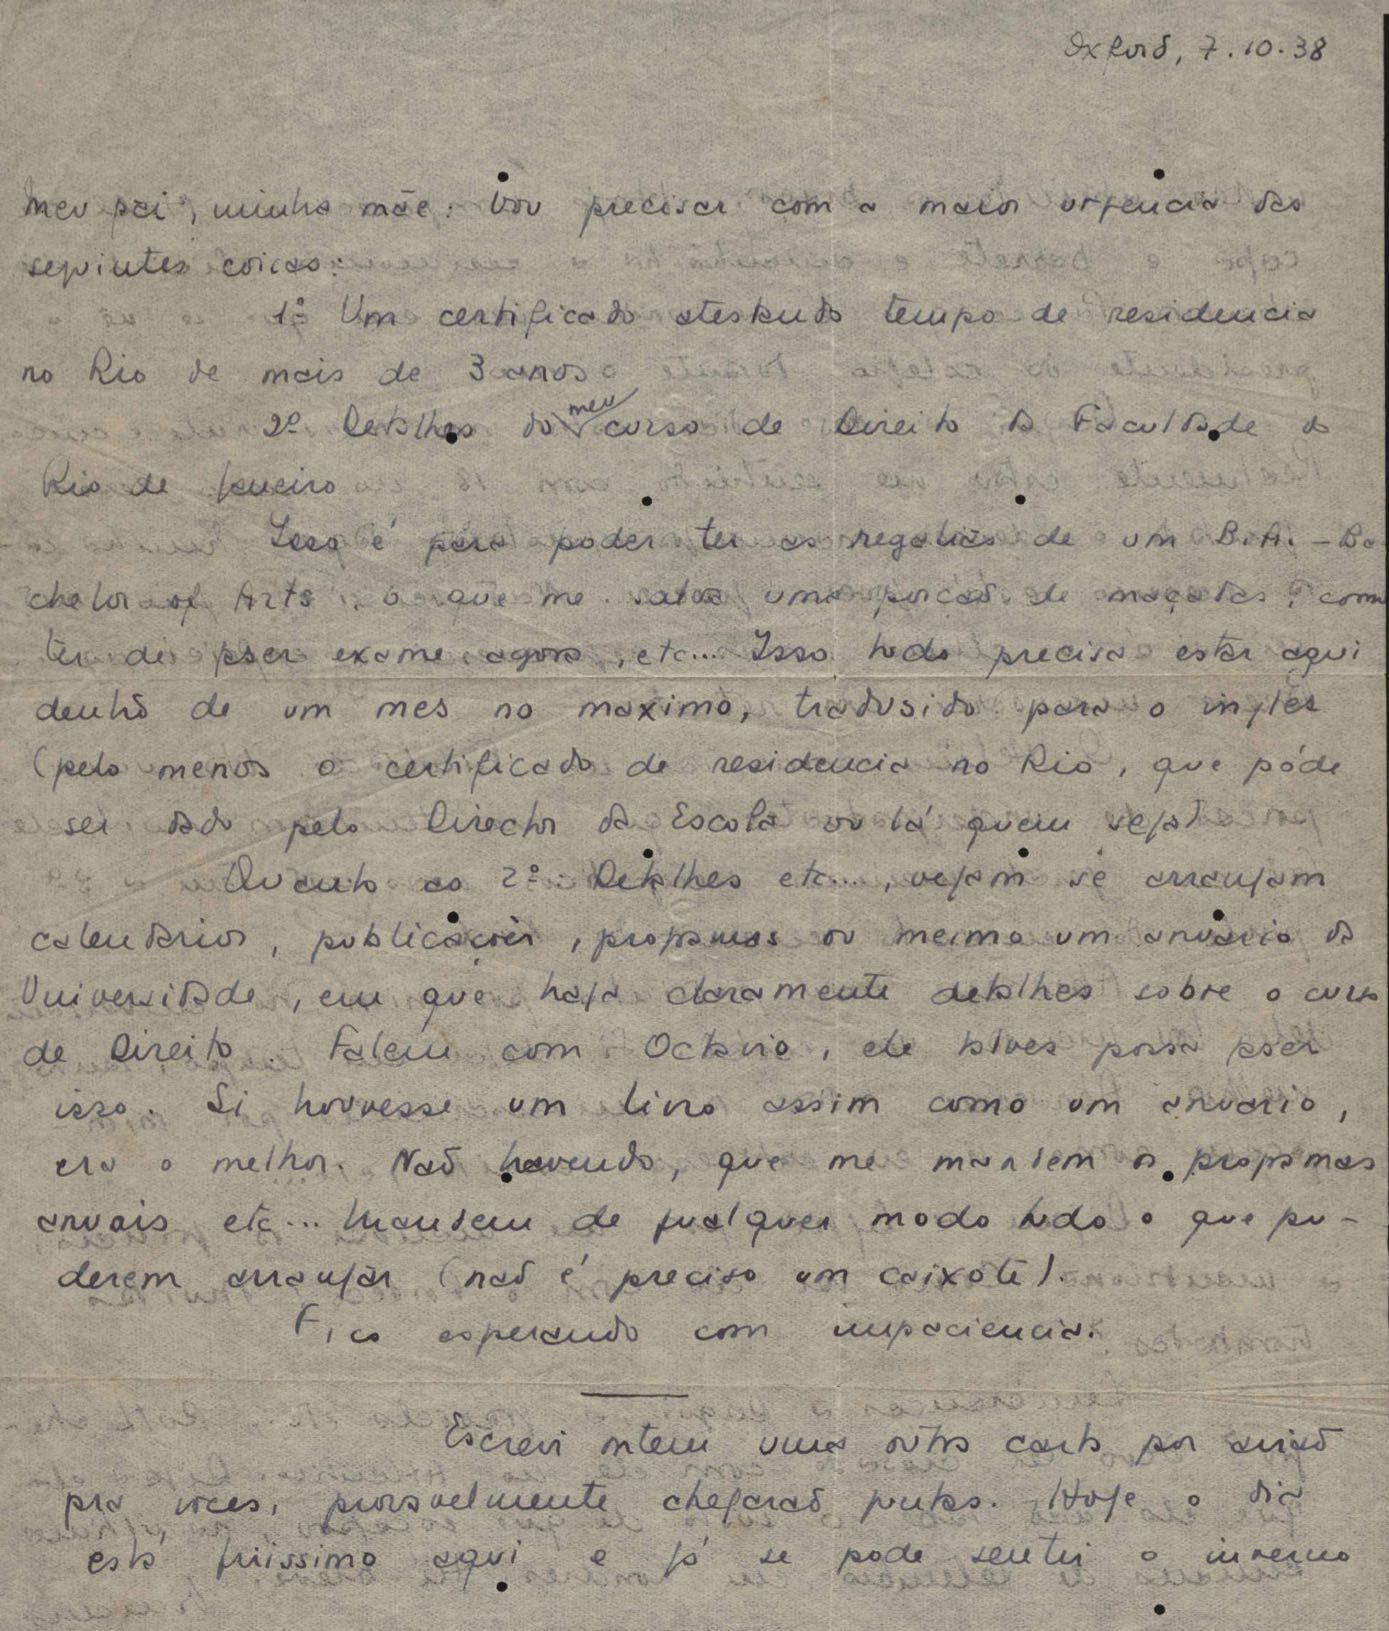 Oxford, 7.10.38
Meu pai, minha mãe: Vou precisar com a maior urgencia das
seguintes coisas:
1º Um certificado atestando tempo de residencia
no Rio de mais de 3 anos
2º Detalhes do meu curso de Direito da Faculdade do
Rio de Janeiro
Isso é para poder ter as regalias de um B.A. - Ba
chelor of Arts, o que me salva uma porcaõ de maçadas, como
ter de fazer exame agora, etc... Isso tudo precisa estar aqui
dentro de um mes no maximo, tradusido para o ingles
(pelo menos o certificado de residencia no Rio, que póde
ser dado pelo Director da Escola ou lá quem seja)
Quanto ao 2º: Detalhes etc..., vejam se arranjam
calendarios, publicações, programas ou mesmo um anuario da
Universidade, em que haja claramente detalhes sobre o curso
de Direito. Falem com Octavio, ele talves possa fazer
isso. Si houvesse um livro assim como um anuario,
era o melhor. Naõ havendo, que me mandem os programas
anuais etc... Mandem de qualquer modo tudo o que pu-
derem arranjar (naõ é preciso um caixote).
Fico esperando com impaciencia.
Escrevi ontem uma outra carta por aviaõ
pra voces, provavelmente chegaraõ juntas. Hoje o dia
está friissimo aqui e já se pode sentir o inverno